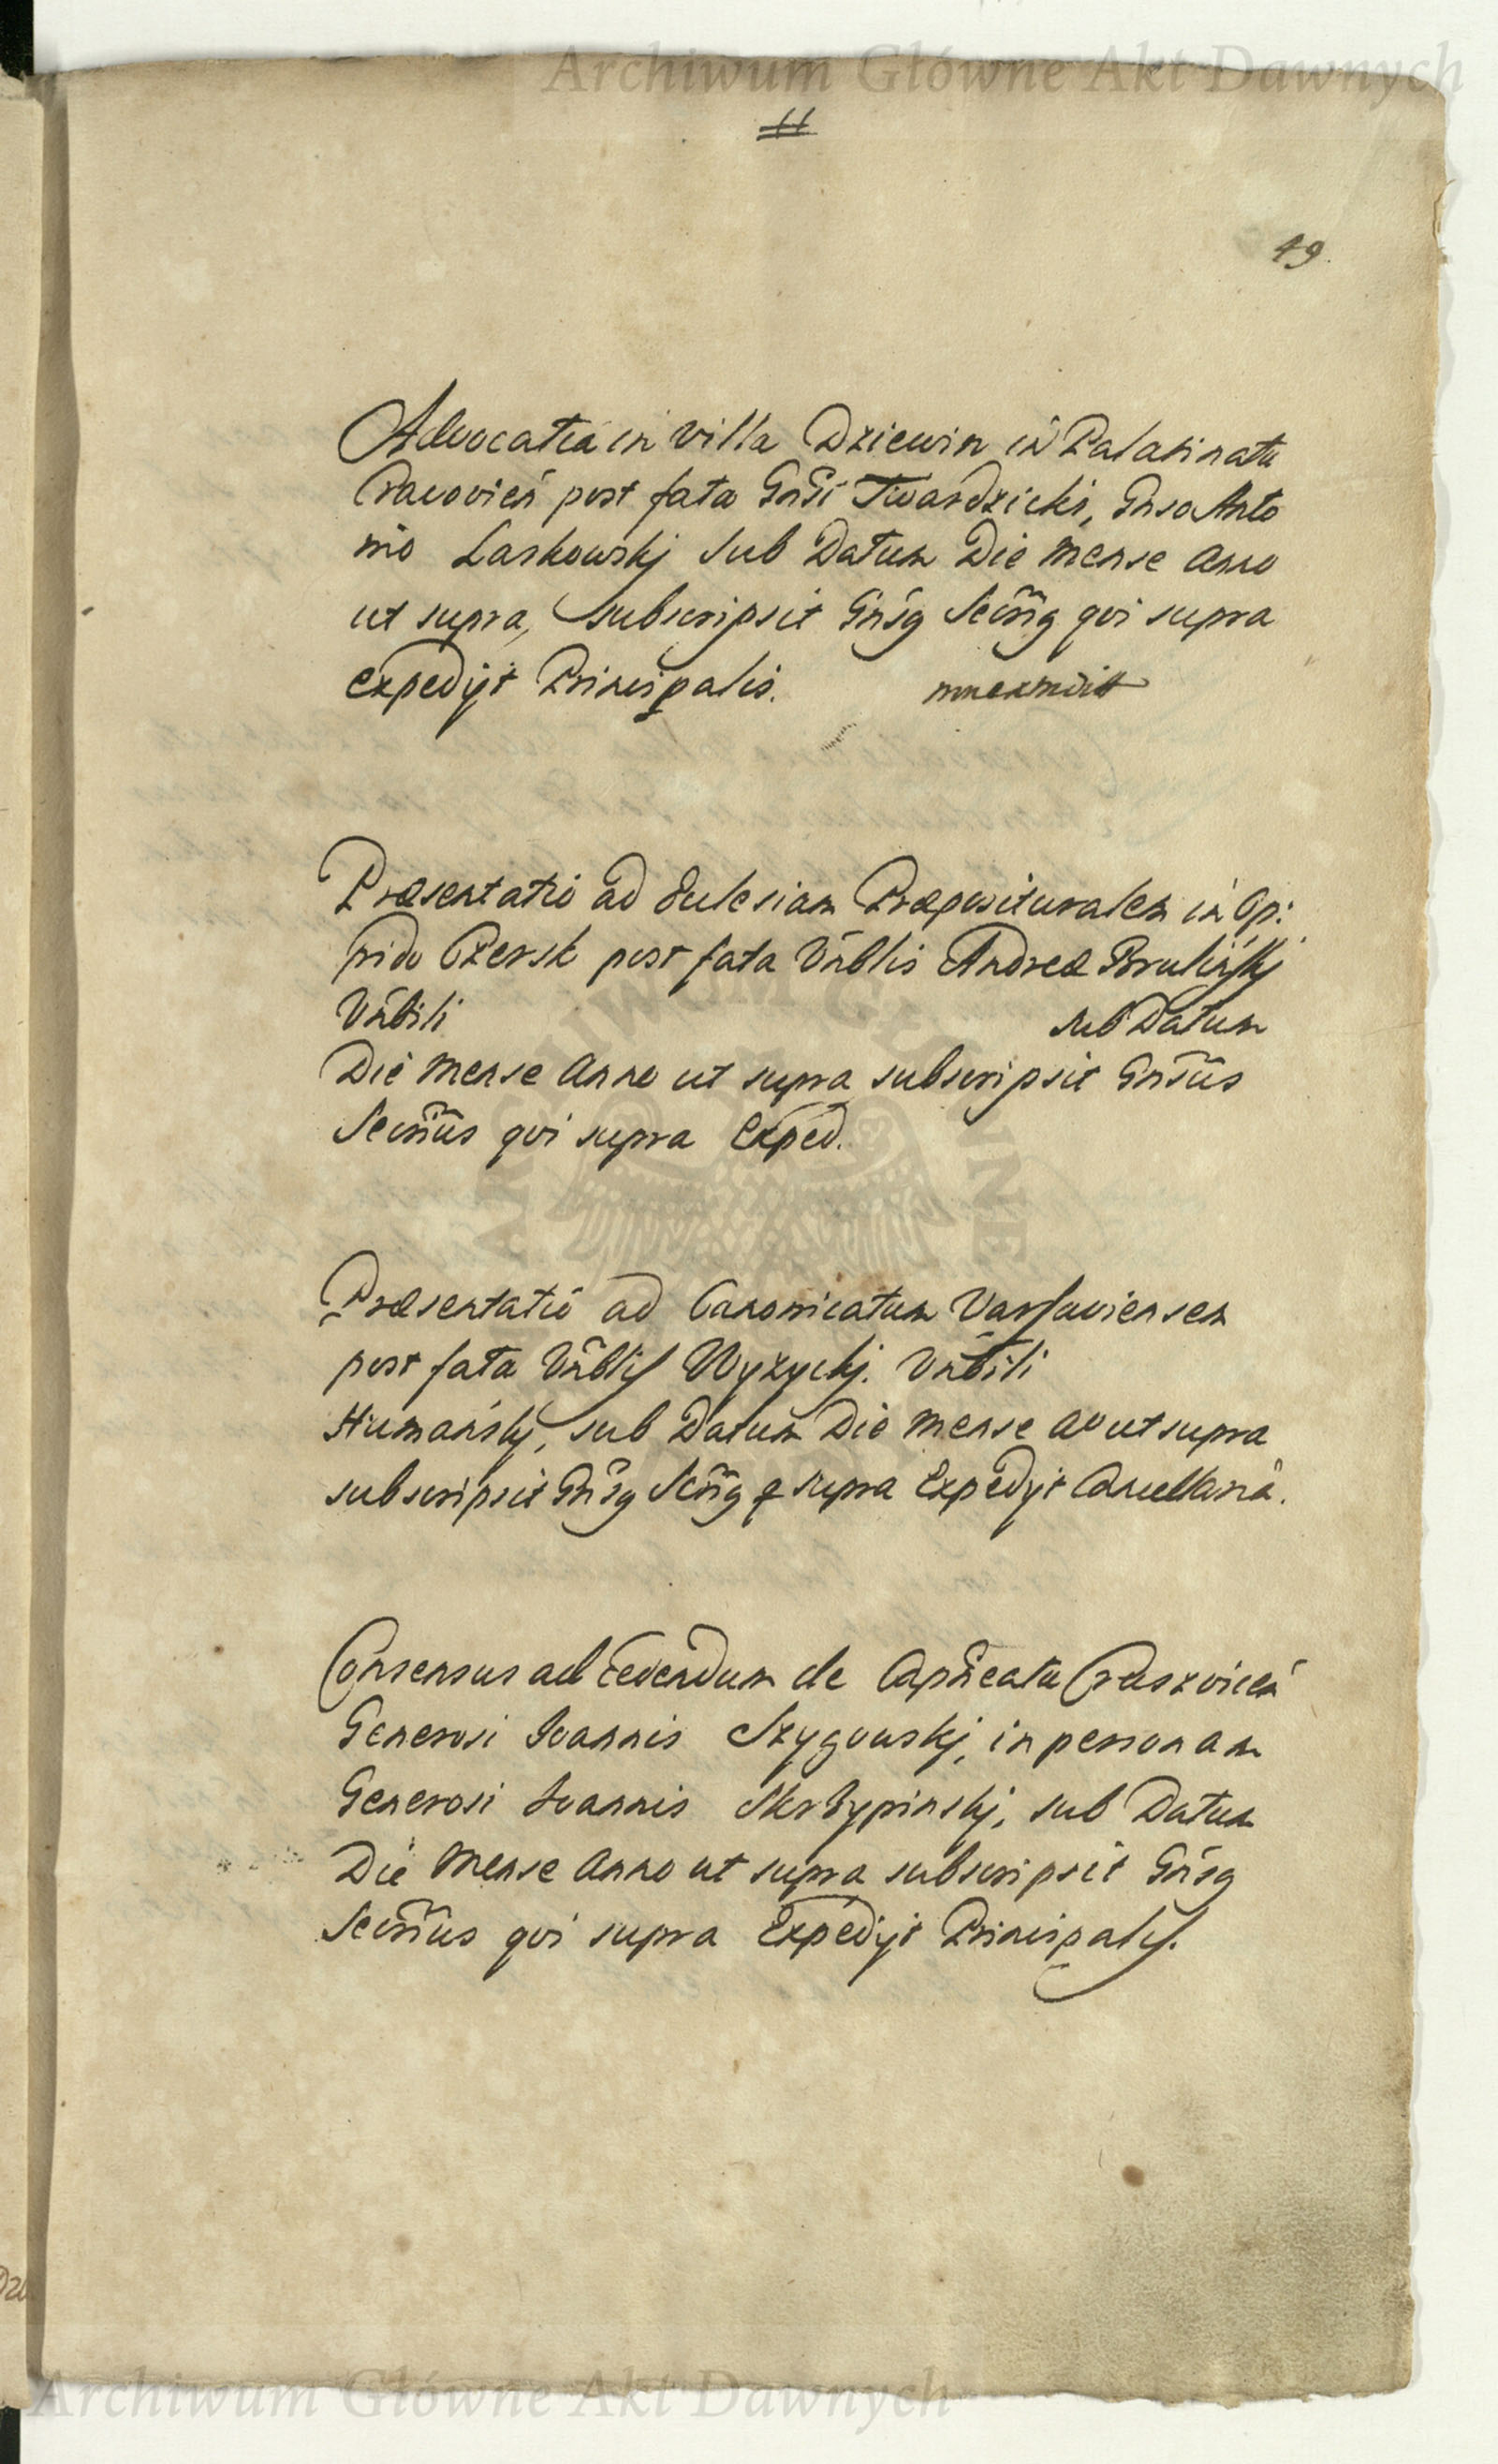 Archiwum Główne Akt Dawnych
11
49.
Advocatia in Villa Dziewin in Palatinatu
Cracovień post fata Gnsi Twardzicki, Gnso Anto
nio Laskowskj sub Datum Die Mense Anno
ut supra, subscripsit Gnsg Secrrig qvi supra
expedijt Principalis.
Præsentatio ad Ecclesiam Præposituralem in Op:
pido Czersk post fata Vnblis Andreæ Brulinskj
Vnbili sub Datum
Die Mense Anno ut supra subscripsit Gnsus
Secrrius qvi supra Exped.
Præsentatio ad Canonicatum Varsaviensem
post fata Vnblis Wyzyckj. Vnbili
Humanskj, sub Datum Die Mense Ao ut supra
subscripsit Gnsg Scrrig q supra Expedijt Cancellaria.
Consensus ad Cedendum de Capneatu Craszvicen
Generosi Ioannis Szygowskj, in personam
Generosi Ioannis Skrzypinskj, sub Datum
Die Mense Anno ut supra subscripsit Gnsg
Secrrius qvi supra Expedijt Principalis.
Archiwum Główne Akt Dawnych